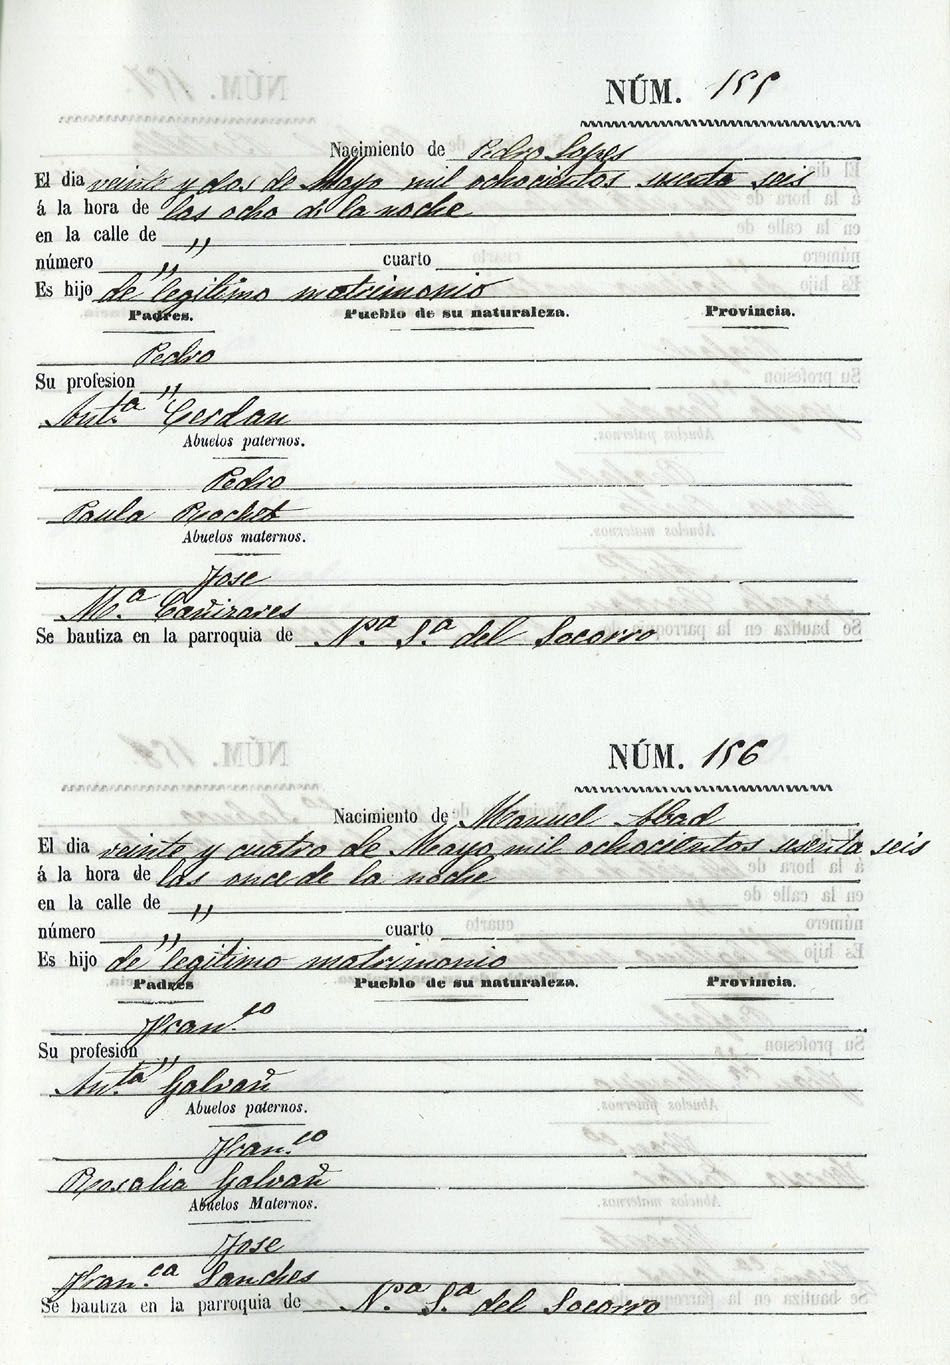 NÚM. 155
Nacimiento de Pedro Lopes
El dia veinte y dos de Mayo mil ochocientos sesenta seis
á la hora de las ocho de la noche
en la calle de "
número " cuarto
Es hijo de legitimo matrimonio
Padres. Pueblo de su naturaleza. Provincia.
Pedro
Su profesion "
Ant.ª Cerdan
Abuelos paternos.
Pedro
Paula Rochet
Abuelos maternos.
Jose
M.ª Cañizares
Se bautiza en la parroquia de N.ª S.ª del Socorro
NÚM. 156
Nacimiento de Manuel Abad
El dia veinte y cuatro de Mayo mil ochocientos sesenta seis
á la hora de las once de la noche
en la calle de "
número " cuarto
Es hijo de legitimo matrimonio
Padres Pueblo de su naturaleza. Provincia.
Fran.co
Su profesion "
Ant.ª Galvañ
Abuelos paternos.
Fran.co
Rosalia Galvañ
Abuelos Maternos.
Jose
Fran.ca Sanches
Se bautiza en la parroquia de N.ª S.ª del Socorro